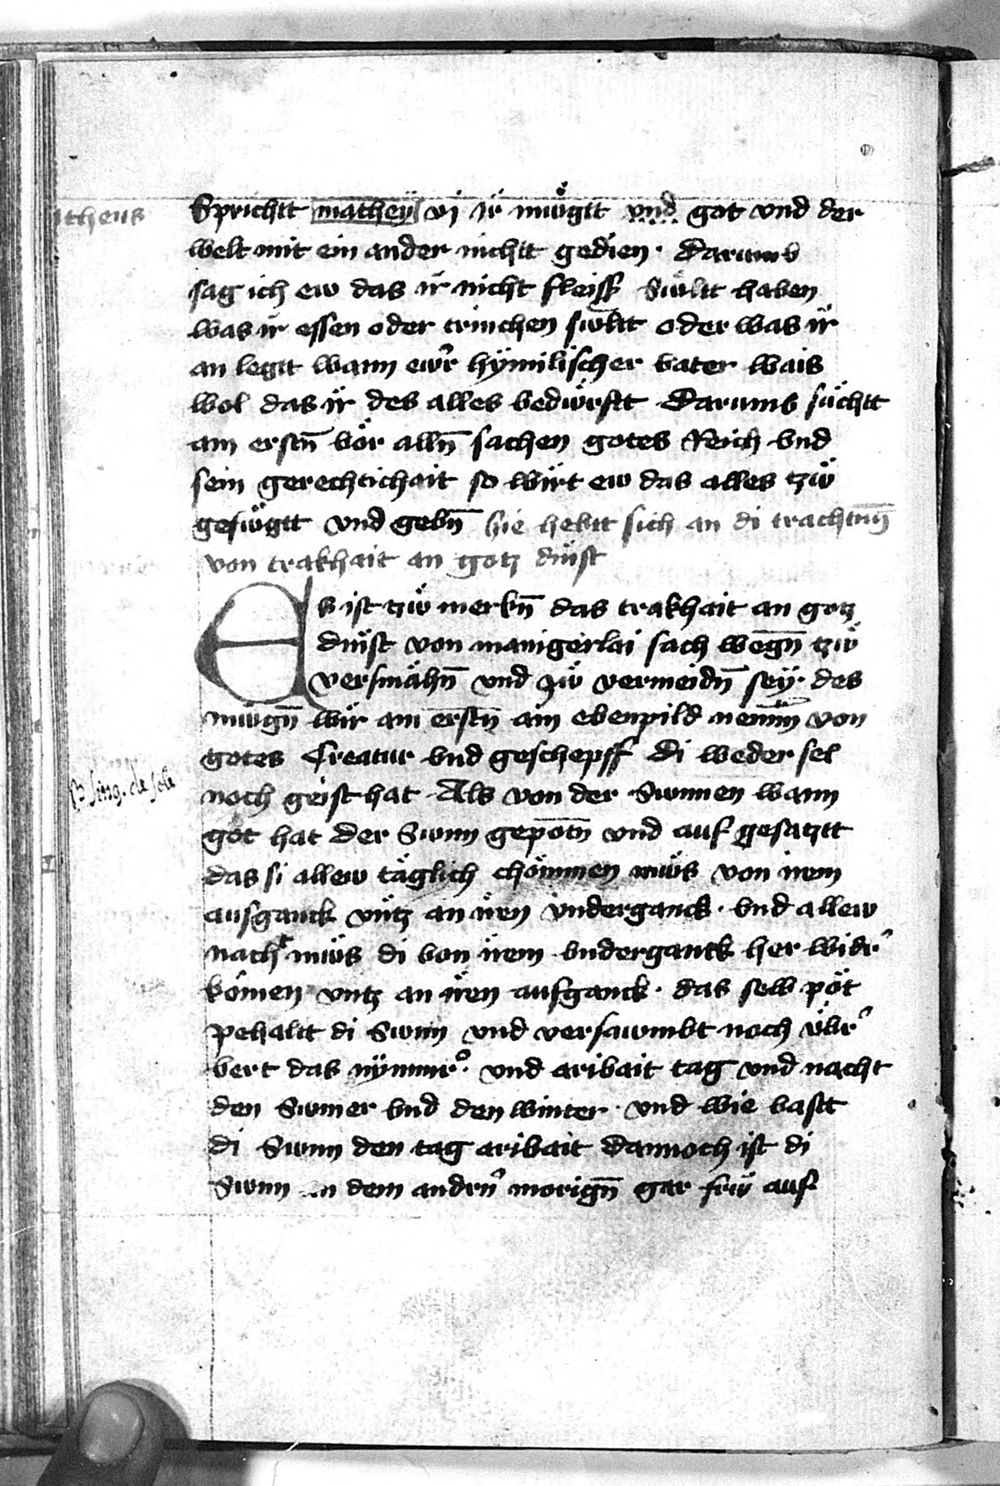 itheus
Sprichtt mathey vj ir mügtt vnd got vnd der
welt mit ein ander nichtt gedien · Darumb
sag ich ew das ir nicht fleiss Swltt haben
was ir essen oder trinchen swltt oder was ir
an legtt wann ewr̄ hÿmilischer vater wais
wol das ir des alles bedürftt Darumb süchtt
am erstn̄ vör alln̄ sachen gotes Reich vnd
sein gerechtichait so wirt ew das alles tzw̎
gefw̎gtt vnd gebn̄ hie hebtt sich an di trachtung
von trakhait an gotz dinst
Es ist tzw̎ merkn̄ das trakhait an gotz
dinst von manigerlai sach wegn̄ tzw̎
versmähn̄ vnd zw̎ vermeidn̄ seÿ · des
mügn̄ wir am erstn̄ ain ebenpild nemm̄ von
gotes Creatur vnd geschepff Di weder sel
noch geist hat Als von der Swnnen wann
got hat der Swnn gepotn̄ vnd auf gesatztt
das si allew täglich chömmen mw̎s von irem
aufganck vntz an iren vnderganck · vnd allew
nacht mw̎s di von irem vnderganck her widr̄
kömen vntz an iren aufganck · das selb pöt
pehaltt di Swnn vnd versawmbt noch übr̄
vert das nÿmmr̄ · vnd aribait tag vnd nacht
den Swmer vnd den winter · vnd wie vastt
di Swnn den tag aribait Dannoch ist di
Swnn an dem andrn̄ morign̄ gar frw̎ auf
de sole